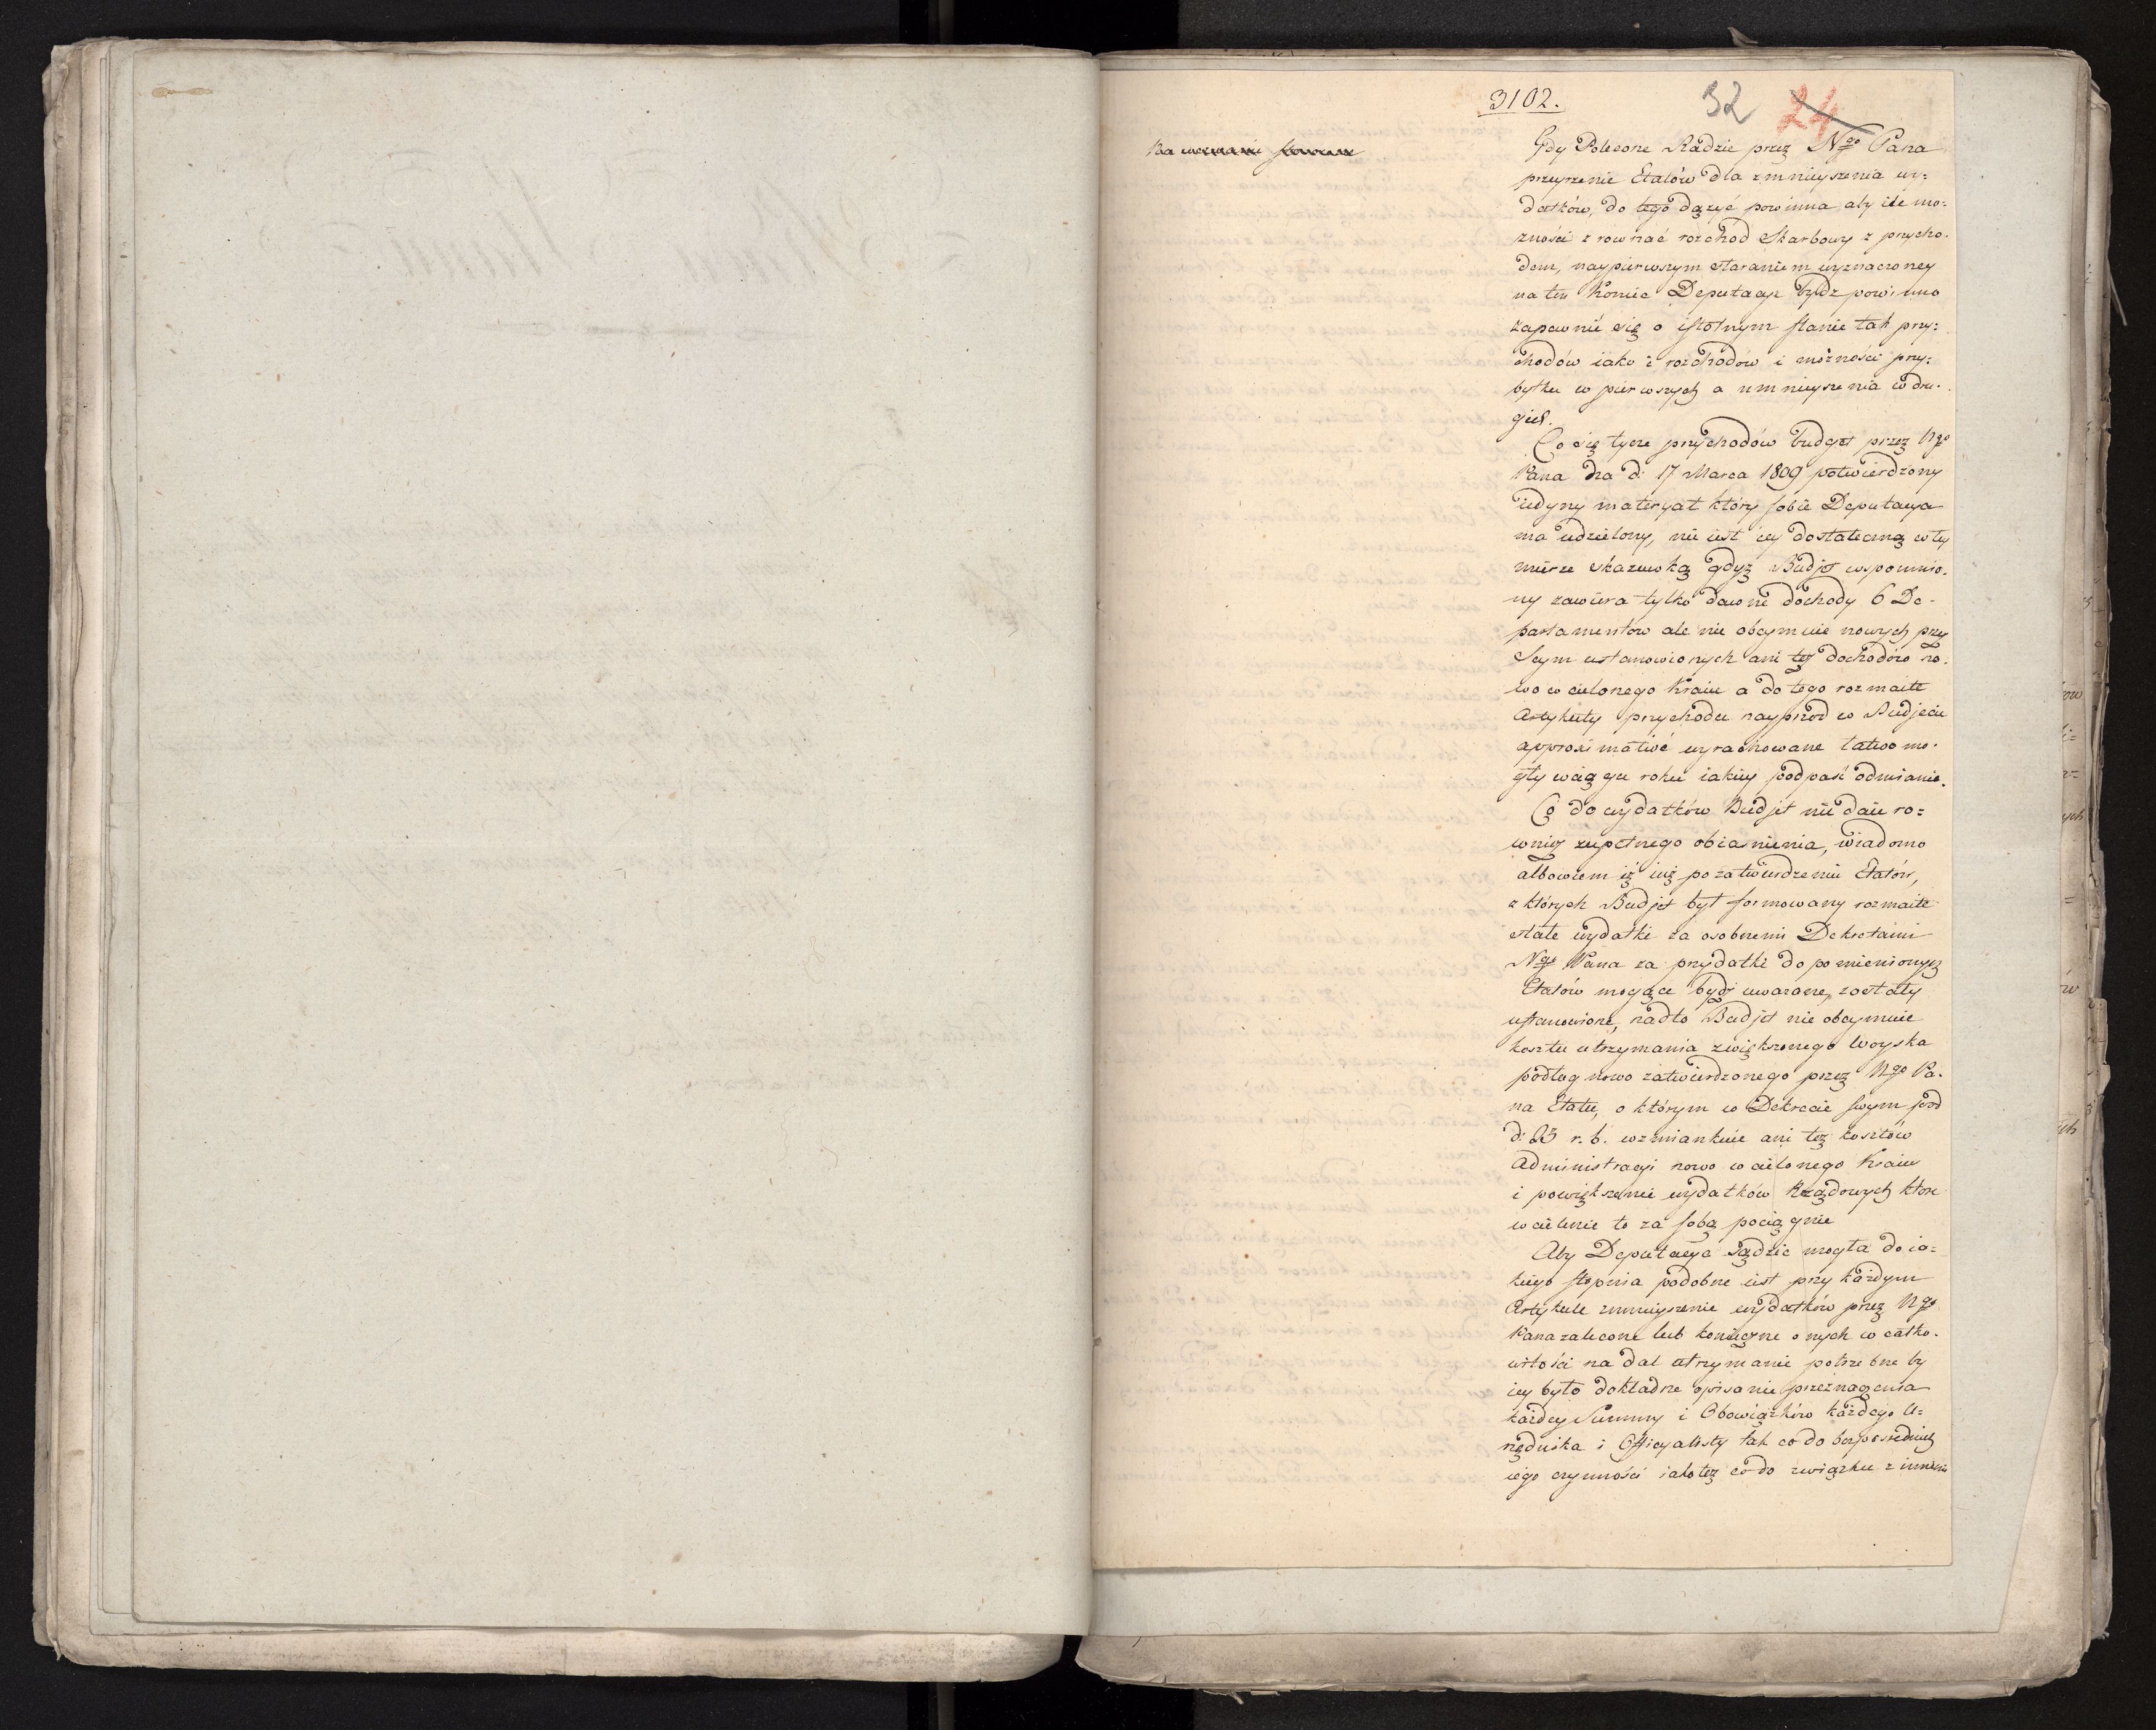 3102.
32 24
Gdy Polecone Radzie przez Ngo Pana
przeyrzenie Etatów dla zmnieyszenia wy=
datków, do tego dążyć powinna aby ile mo=
zności zrownać rozchod Skarbowy z przycho.
dem, naypierwszym staraniem wyznaczoney
na ten Koniec Deputacyi bydz powinno
zapewnić się o istotnym stanie tak przy=
chodów iako i rozchodów i możności przy=
bytku w pierwszych a umnieyszenia w dru.
gich.
Co się tycze przychodów budget przez Ngo
Pana dla d: 17 Marca 1809 potwierdzony
iedyny materyał który sobie Deputacya
ma udzielony, nie iest iey dostateczną w tey
mierze skazuwką gdyż Budjet wspomnio.
ny zawiera tylko dawne dochody 6 De-
partamentow ale nie obeymuie nowych przy
Seym ustanowionych ani też dochodów no.
wo wcielonego Kraiu a do tego rozmaite
Artykuły przychodu nayprzod w Budjecie
approximativé wyrachowane łatwo mo.
gły w ciągu roku iakiey podpaść odmianie.
Co do wydatków Budjet nie daie ro=
wnież zupełnego obiasnienia, wiadomo
albowiem iż iuż po zatwierdzeniu Etatów,
z których Budjet był formowany rozmaite
stałe wydatki za osobnemi Dekretami
Ngo Pana za przydatki do pomienionych
Etatów mogące bydź uwazane, zostały
ustanowione, nadto Budjet nie obeymuie
kosztu utrzymania zwiększonego Woyska
podług nowo zatwierdzonego przez Ngo Pa.
na Etatu, o którym w Dekrecie swym pod
d: 23 r. b. wzmiankuie ani też kosztów
Administracyi nowo wcielonego Kraiu
i powiększenie wydatków Rządowych ktore
wcielenie to za sobą pociągnie
Aby Deputacya sądzić mogła do ia=
kiego stopnia podobne iest przy każdym
Artykule zmnieyszenie wydatków przez Ngo
Pana zalecone lub konieczne onych w całko.
witości na dal utrzymanie potrzebne by
iey było dokładne opisanie przeznaczenia
każdey Summy i Obowiązków każdego U=
rzędnika i Officyalisty tak co do bezpośredniey
iego czynności iako też co do związku z innemi